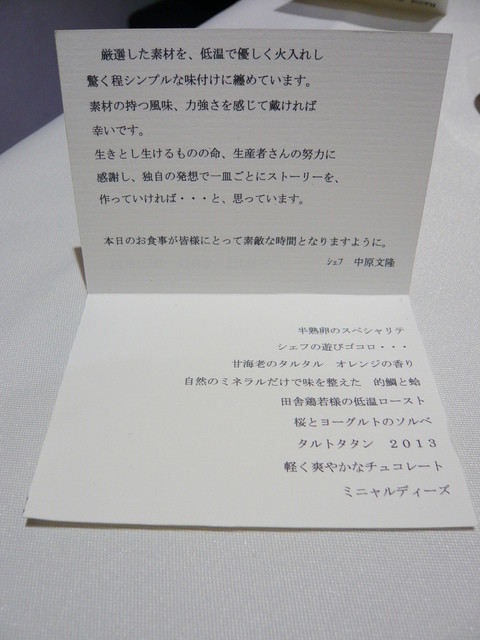 厳選した素材を、低温で優しく火入れし
驚く程シンプルな味付けに纏めています。
素材の持つ風味、力強さを感じて戴ければ
幸いです。
生きとし生けるものの命、生産者さんの努力に
感謝し、独自の発想で一皿ごとにストーリーを、
作っていければ・・・と、思っています。
本日のお食事が皆様にとって素敵な時間となりますように。
ｼｪﾌ 中原文隆
半熟卵のスペシャリテ
シェフの遊びゴコロ・・・
甘海老のタルタル オレンジの香り
自然のミネラルだけで味を整えた 的鯛と蛤
田舎鶏若様の低温ロースト
桜とヨーグルトのソルベ
タルトタタン ２０１３
軽く爽やかなチュコレート
ミニャルディーズ